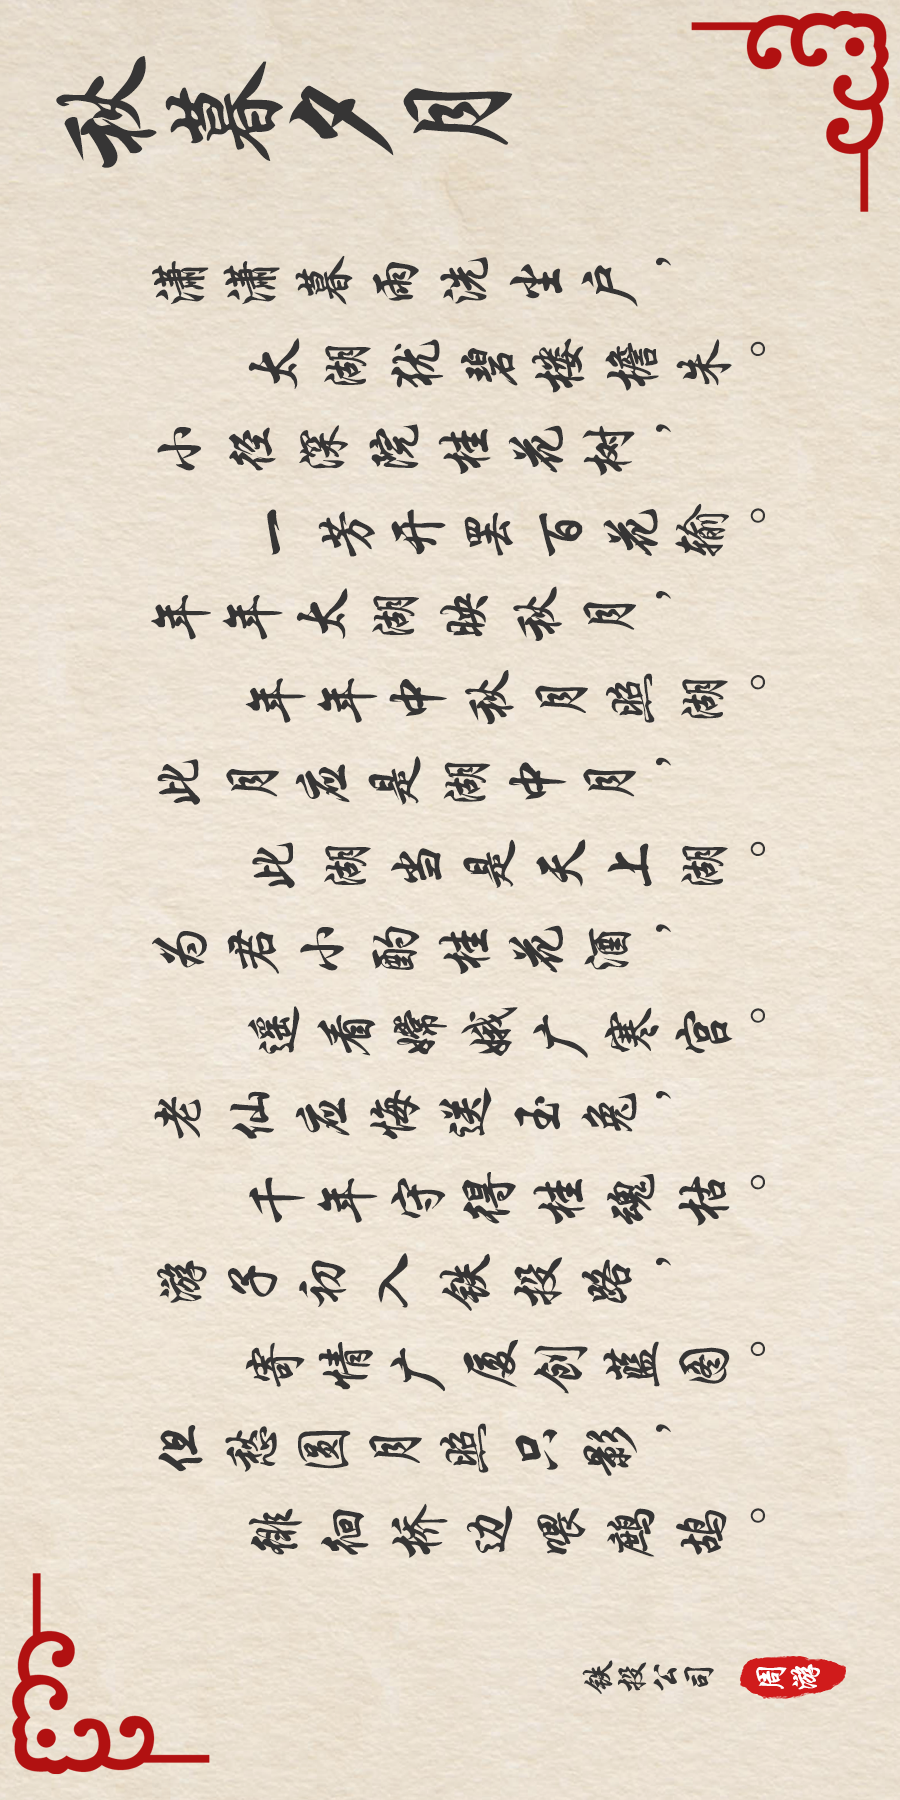 秋暮夕月
潇潇暮雨洗尘户，
太湖犹碧楼檐朱。
小径深院桂花树，
一芳开罢百花输。
年年太湖映秋月，
年年中秋月照湖。
此月应是湖中月，
此湖当是天上湖。
为君小酌桂花酒，
遥看嫦娥广寒宫。
老仙应悔送玉兔，
千年守得桂魂枯。
游子初入铁投路，
寄情广厦创蓝图。
但愁圆月照只影，
徘徊桥边喂鹧鸪。
铁投公司 周游